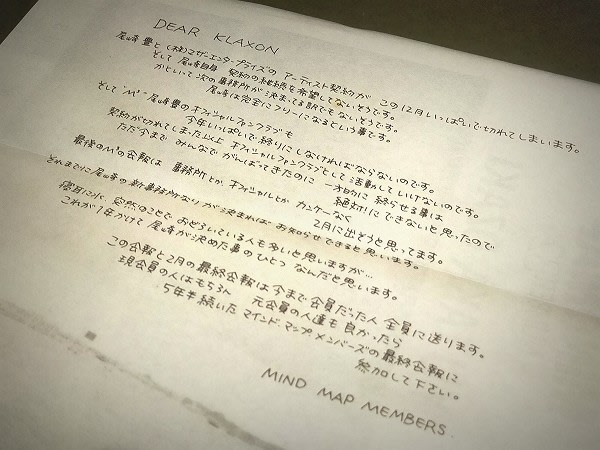 DEAR KLAXON
尾崎豊と(株)マザーエンタープライズの アーティスト契約が この12月いっぱいで切れてしまいます。
そして 尾崎自身 契約の継続を希望してないそうです。
かといって次の事務所が決まってる訳でもないそうです。
尾崎は完全にフリーになるという事です。
そして "M³" 尾崎豊のオフィシャルファンクラブも
今年いっぱいで終りにしなければならないのです。
契約が切れてしまった以上 オフィシャルファンクラブとして活動していけないのです。
ただ今まで みんなで がんばってきたのに 一方的に 終らせる事は
絶対に できないと思ったので
最後のM³の会報は 事務所とか オフィシャルとか カンケーなく
2月に出そうと思ってます。
それまでに尾崎の新事務所なりが決まれば お知らせできると思います。
寝耳に水、突然のことで おどろいている人も多いと思いますが…
これが1年かけて 尾崎が決めた事のひとつ なんだと思います。
この会報と2月の最終会報は今まで会員だった人 全員に送ります。
現会員の人はもちろん 元会員の人達も 良かったら
5年半続いた マインド・マップ・メンバーズの最終会報に
参加して下さい。
MIND MAP MEMBERS.